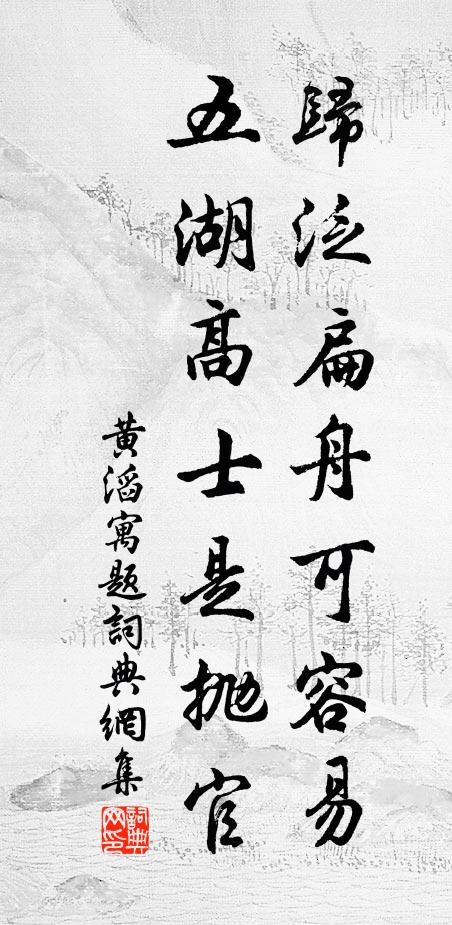 歸泛扁舟可容易
五湖高士是抛官
黃滔寓題詞典網集
詞典网印